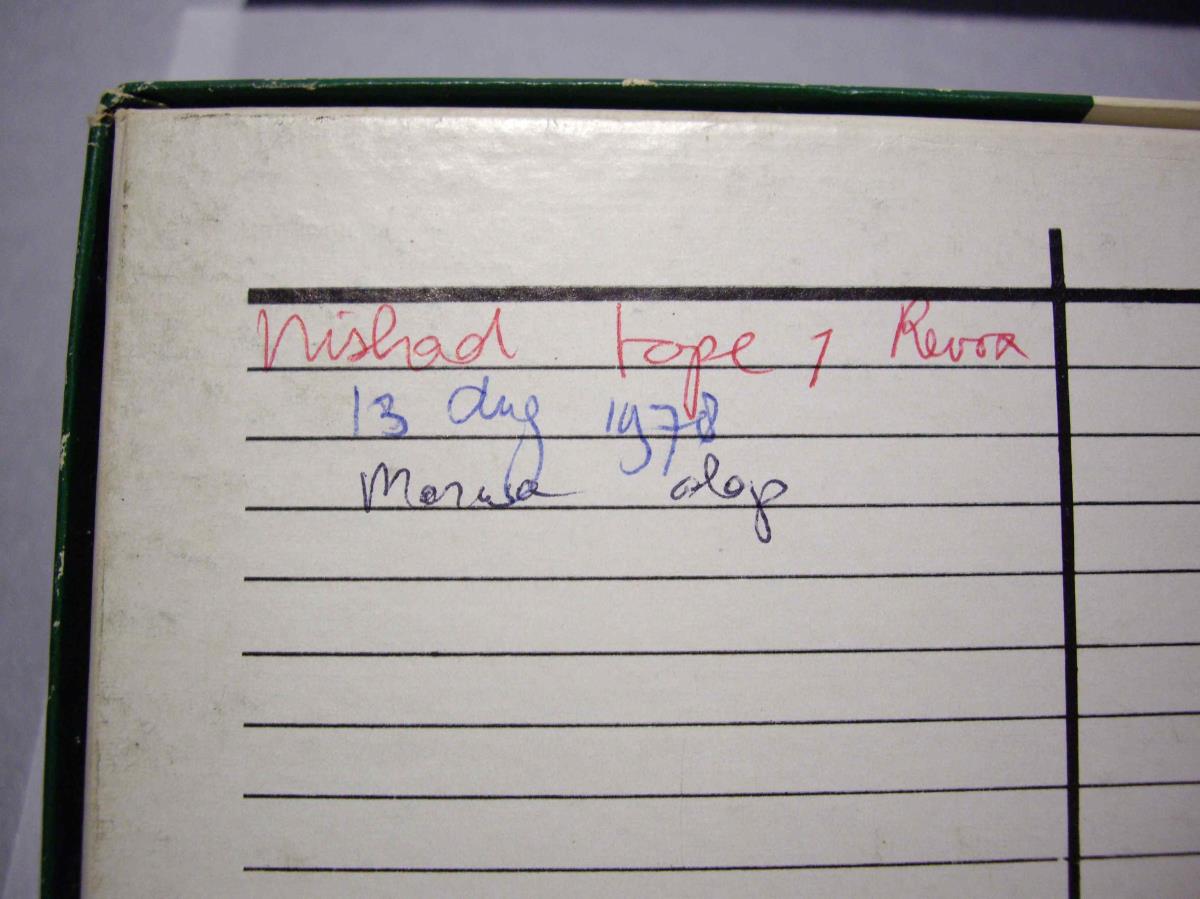 Nishad tape 1 Revox
13 Aug 1978
Marwa alap